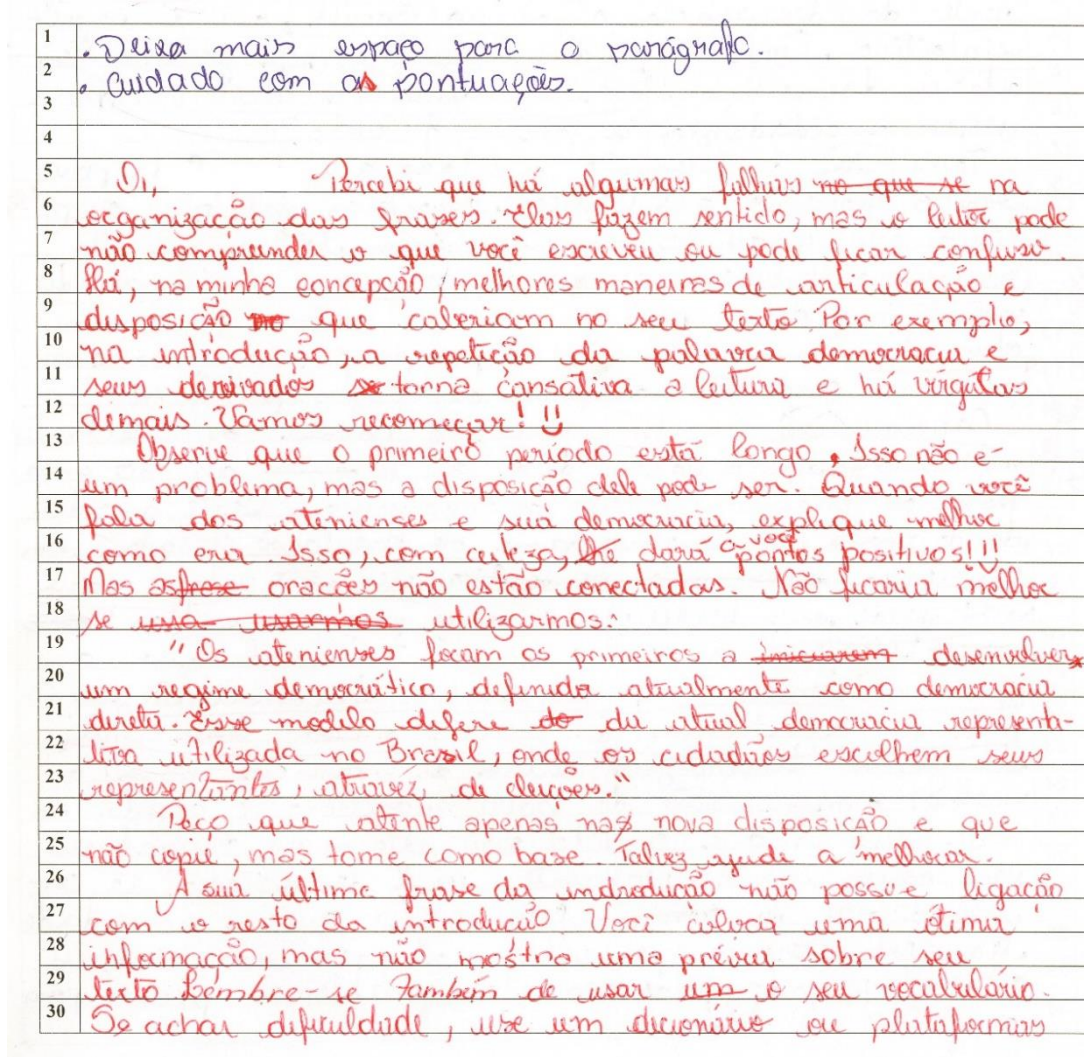 1 . Deixa mais espaço para o parágrafo.
2 . Cuidado com as pontuações.
3
4
5 Oi, Percebi que há algumas falhas no que se na
6 organização das frases. Elas fazem sentido, mas o leitor pode
7 não compreender o que você escreveu ou pode ficar confuso.
8 Há, na minha concepção, melhores maneiras de articulação e
9 disposição no que caberiam no seu texto. Por exemplo,
10 na introdução, a repetição da palavra democracia e
11 seus derivados se torna cansativa a leitura e há vírgulas
12 demais. Vamos recomeçar! !!
13 Observe que o primeiro período está longo. Isso não é
14 um problema, mas a disposição dele pode ser. Quando você
15 fala dos atenienses e sua democracia, explique melhor
16 como era. Isso, com certeza, lhe dará a você pontos positivos! !!
17 Mas as frase orações não estão conectadas. Não ficaria melhor
18 se usa usarmos utilizarmos:
19 "Os atenienses foram os primeiros a iniciarem desenvolver
20 um regime democrático, definida atualmente como democracia
21 direta. Esse modelo difere do da atual democracia representa-
22 tiva utilizada no Brasil, onde os cidadãos escolhem seus
23 representantes, atravez de eleições."
24 Peço que atente apenas na nova disposição e que
25 não copie, mas tome como base. Talvez ajude a melhorar.
26 A sua última frase da indrodução não possue ligação
27 com o resto da introdução. Você coloca uma ótima
28 informação, mas não mostra uma prévia sobre seu
29 texto. Lembre-se também de usar um o seu vocabulário.
30 Se achar dificuldade, use um dicionário ou plataformas